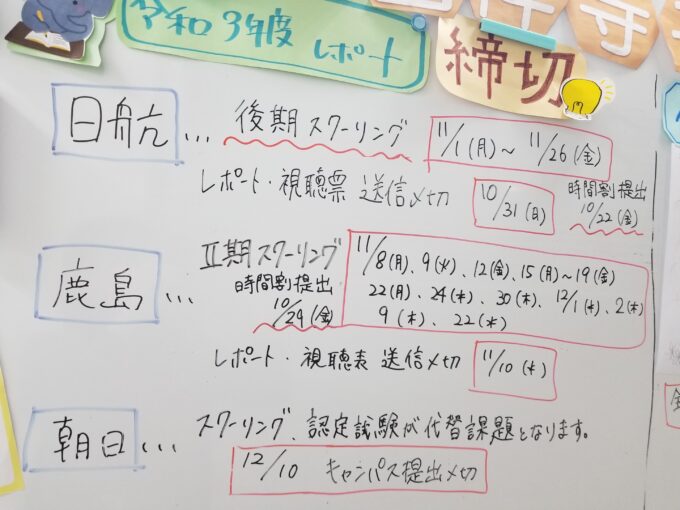 令和3年度 レポート
締切
日航… 後期スクーリング 11/1(月)～11/26(金)
レポート・視聴票 送信〆切 10/31(日)
時間割提出
10/22(金)
鹿島… Ⅱ期スクーリング
時間割提出
10/29(金)
11/8(月)、9(火)、12(金)、15(月)～19(金)
22(月)、24(水)、30(木)、12/1(水)、2(木)
9(木)、22(水)
レポート・視聴表 送信〆切 11/10(水)
朝日… スクーリング、認定試験が代替課題となります。
12/10 キャンパス提出〆切